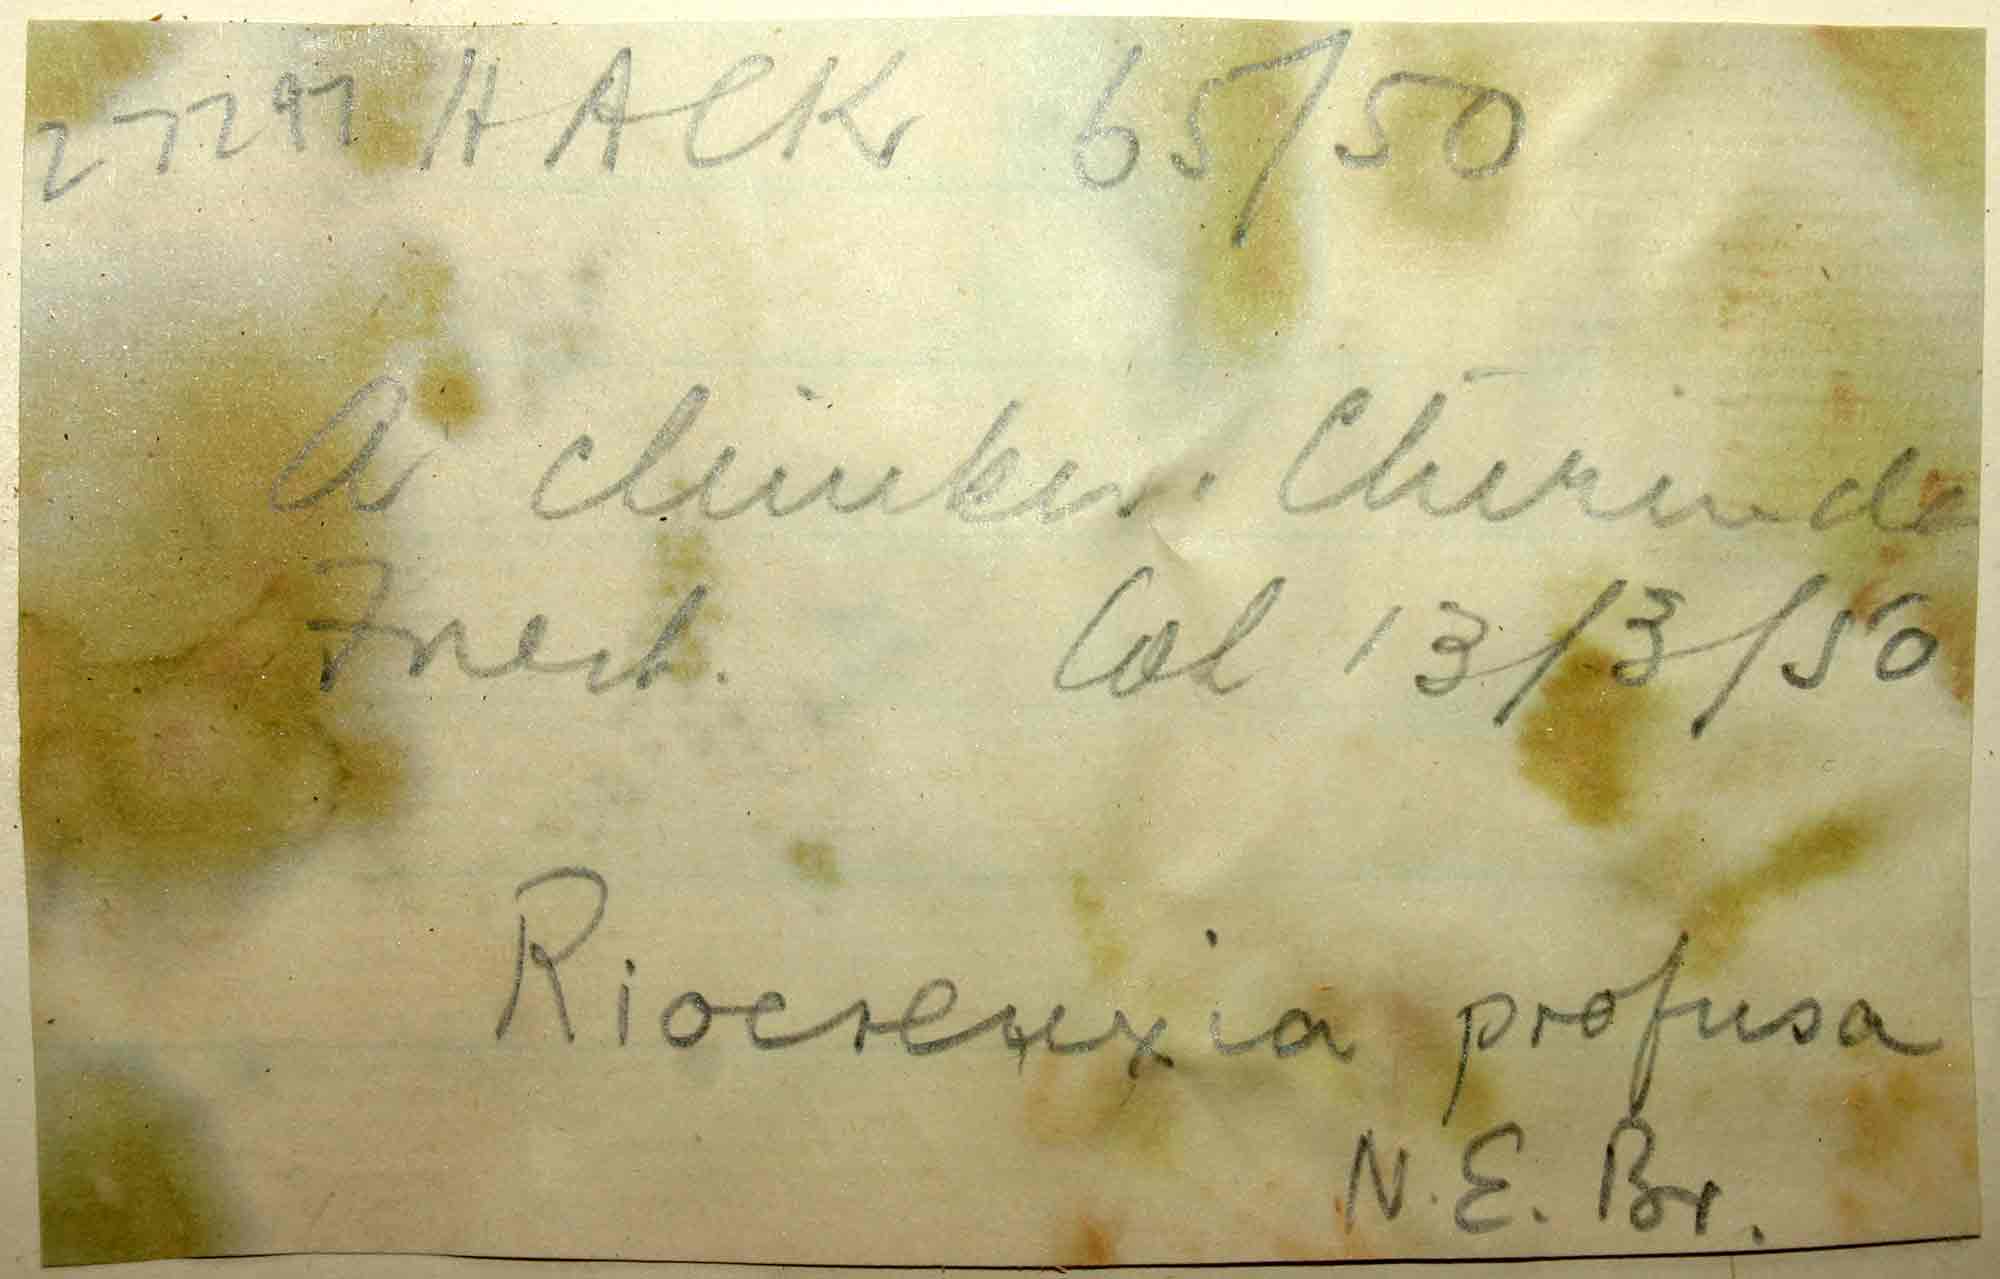 27297 HACK 65/50
A climber. Chirinda
Forest. Col 13/3/50
Riocreuxia profusa
N.E. Br.